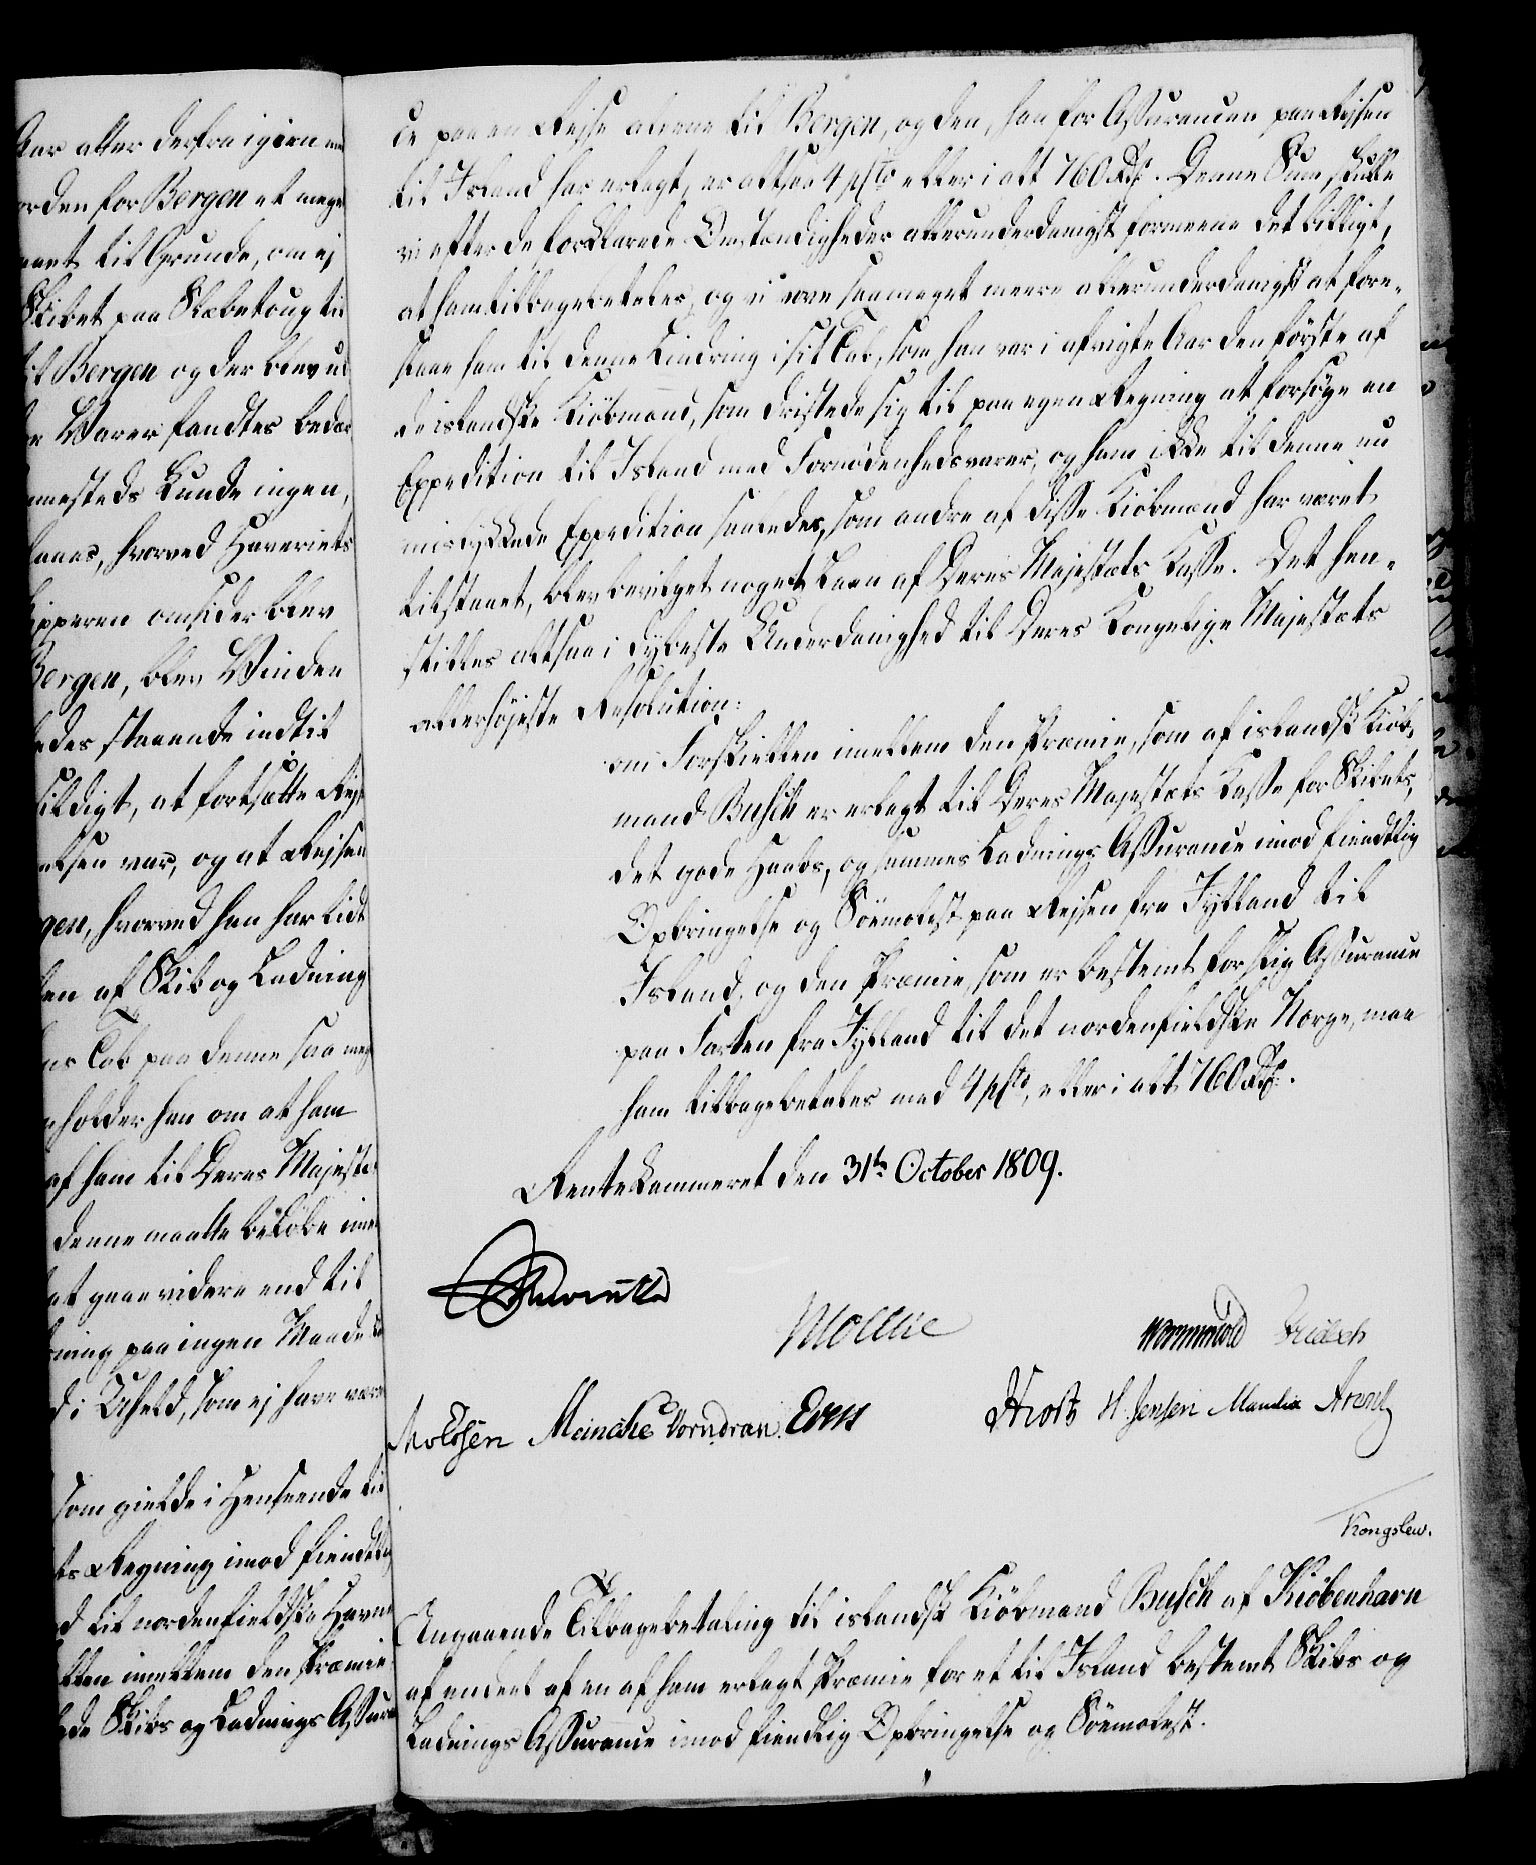 Aar atter derfra igien
orden for Bergen et meget
til Grunde, om ej
Skibet paa Slæbetoug til
Bergen og der blev
Varer fandtes
mesteds kunde ingen,
hvorved Haveriets
ipperen omsider blev
Bergen, blev Vinden
staaende indtil
sildigt, at fortsætte
elsen var, og at Rejsen
gen, hvorved han har lidt
en af Skib og Ladning
ns Tab paa denne saa
holder han om at ham
af ham til Deres Majestæts
denne maatte beløbe
at gaae videre end til
ning paa ingen Maade
d i Uheld, som ej have
som gielde i Henseende til
ts Regning imod fiendtlig
d til nordenfieldske Havne
llen imellem den Præmie
Skibs og Ladnings Assurance
de paa en Rejse alene til Bergen, og den, han for Assurancen paa Rejsen
til Island har erlagt, er altsaa 4 pCto eller i alt 760 Rdr. Denne Sum skulle
vi efter de forklarede Omstændigheder allerunderdanigst formeene det billigt,
at ham tilbagebetales, og vi vove saameget meere allerunderdanigst at fore-
slaae ham til denne Lindring i sit Tab, som han var i afvigte Aar den første af
de islandske Kiöbmænd, som dristede sig til paa egen Regning at forsøge en
Expedition til Island med Fornødenhedsvarer, og ham ikke til denne nu
mislykkede Expedition saaledes, som andre af disse Kiöbmænd har været
tilstaaet, blev bevilget noget Laan af Deres Majestæts Kasse. Det hen-
stilles altsaa i dybeste Underdanighed til Deres Kongelige Majestæts
allerhøjeste Resolution:
om Forskiellen imellem den Præmie, som af islandsk Kiöb-
mand Busch er erlagt til Deres Majestæts Kasse for Skibets,
det gode Haabs, og sammes Ladnings Assurance imod fiendtlig
Opbringelse og Söemolest paa Rejsen fra Jylland til
Island, og den Præmie, som er bestemt for slig Assurance
paa Farten fra Jylland til det nordenfieldske Norge, maa
ham tilbagebetales med 4 pCto, eller i alt 760 Rdr.
Rentekammeret den 31te October 1809.
Reventlow
Wormskiold
Meincke Vorndran Evers
H. Jensen Arentz
Kongslew.
Angaaende Tilbagebetaling til islandsk Kiöbmand Busch af Kiöbenhavn
af endeel af en af ham erlagt Præmie for et til Island bestemt Skibs og
Ladnings Assurance imod fiendtlig Opbringelse og Söemolest.